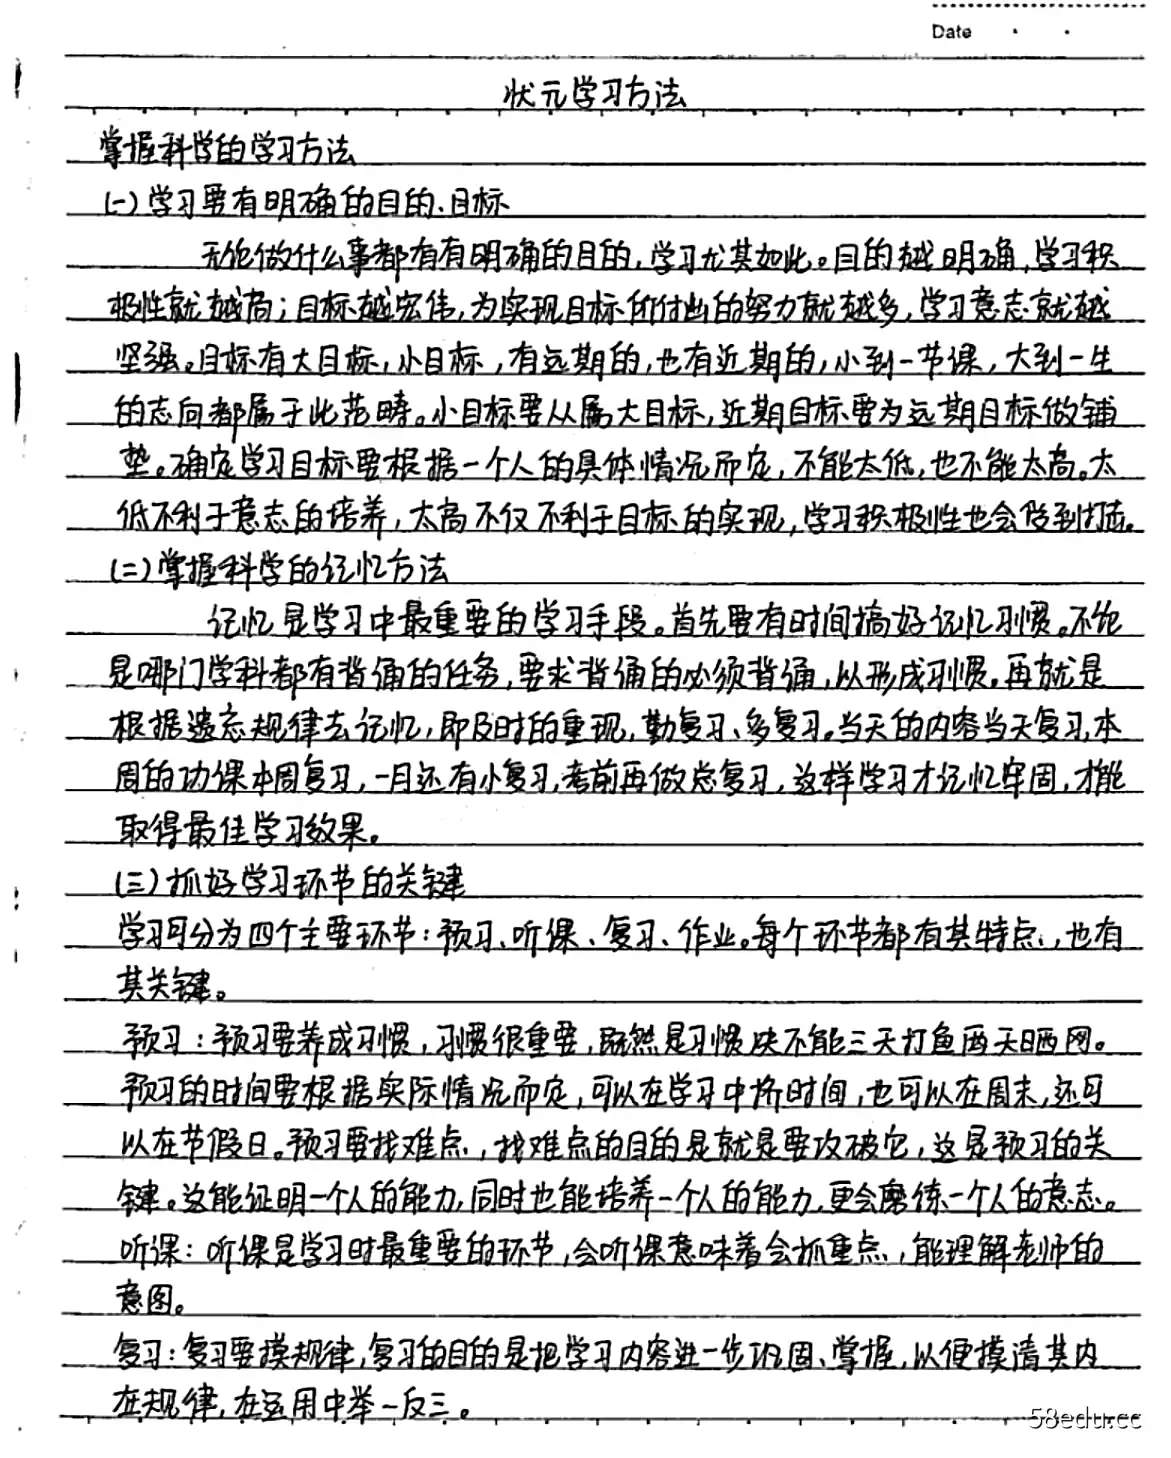 Date
状元学习方法
掌握科学的学习方法
(一)学习要有明确的目的、目标
无论做什么事都有有明确的目的,学习尤其如此。目的越明确,学习积
极性就越高;目标越宏伟,为实现目标所付出的努力就越多,学习意志就越
坚强。目标有大目标,小目标,有远期的,也有近期的,小到一节课,大到一生
的志向都属于此范畴。小目标要从属大目标,近期目标要为远期目标做铺
垫。确定学习目标要根据一个人的具体情况而定,不能太低,也不能太高。太
低不利于意志的培养,太高不仅不利于目标的实现,学习积极性也会受到打击。
(二)掌握科学的记忆方法
记忆是学习中最重要的学习手段。首先要有时间搞好记忆习惯。不论
是哪门学科都有背诵的任务,要求背诵的必须背诵,以形成习惯。再就是
根据遗忘规律去记忆,即及时的重现,勤复习、多复习。当天的内容当天复习,本
周的功课本周复习,一月还有小复习,考前再做总复习,这样学习才记忆牢固,才能
取得最佳学习效果。
(三)抓好学习环节的关键
学习可分为四个主要环节:预习、听课、复习、作业。每个环节都有其特点,也有
其关键。
预习:预习要养成习惯,习惯很重要,既然是习惯决不能三天打鱼两天晒网。
预习的时间要根据实际情况而定,可以在学习中挤时间,也可以在周末,还可
以在节假日。预习要找难点,找难点的目的是就是要攻破它,这是预习的关
键。这能证明一个人的能力,同时也能培养一个人的能力,更会磨练一个人的意志。
听课:听课是学习时最重要的环节,会听课意味着会抓重点,能理解老师的
意图。
复习:复习要摸规律,复习的目的是把学习内容进一步巩固、掌握,以便摸清其内
在规律,在运用中举一反三。
58edu.cc